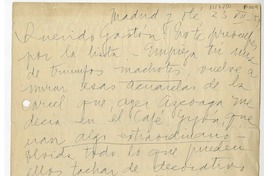 Madrid 7 de
Querido Gastón: No te preocupes
por la lista. Empieza tu
de triunfos machotes vuelve a
mirar esas acuarelas de la
que ayer Azcoaga me
decía en el Café Gijón, que
eran algo extraordinario
olvida todo lo que pueden
ellos tachar de decorativos